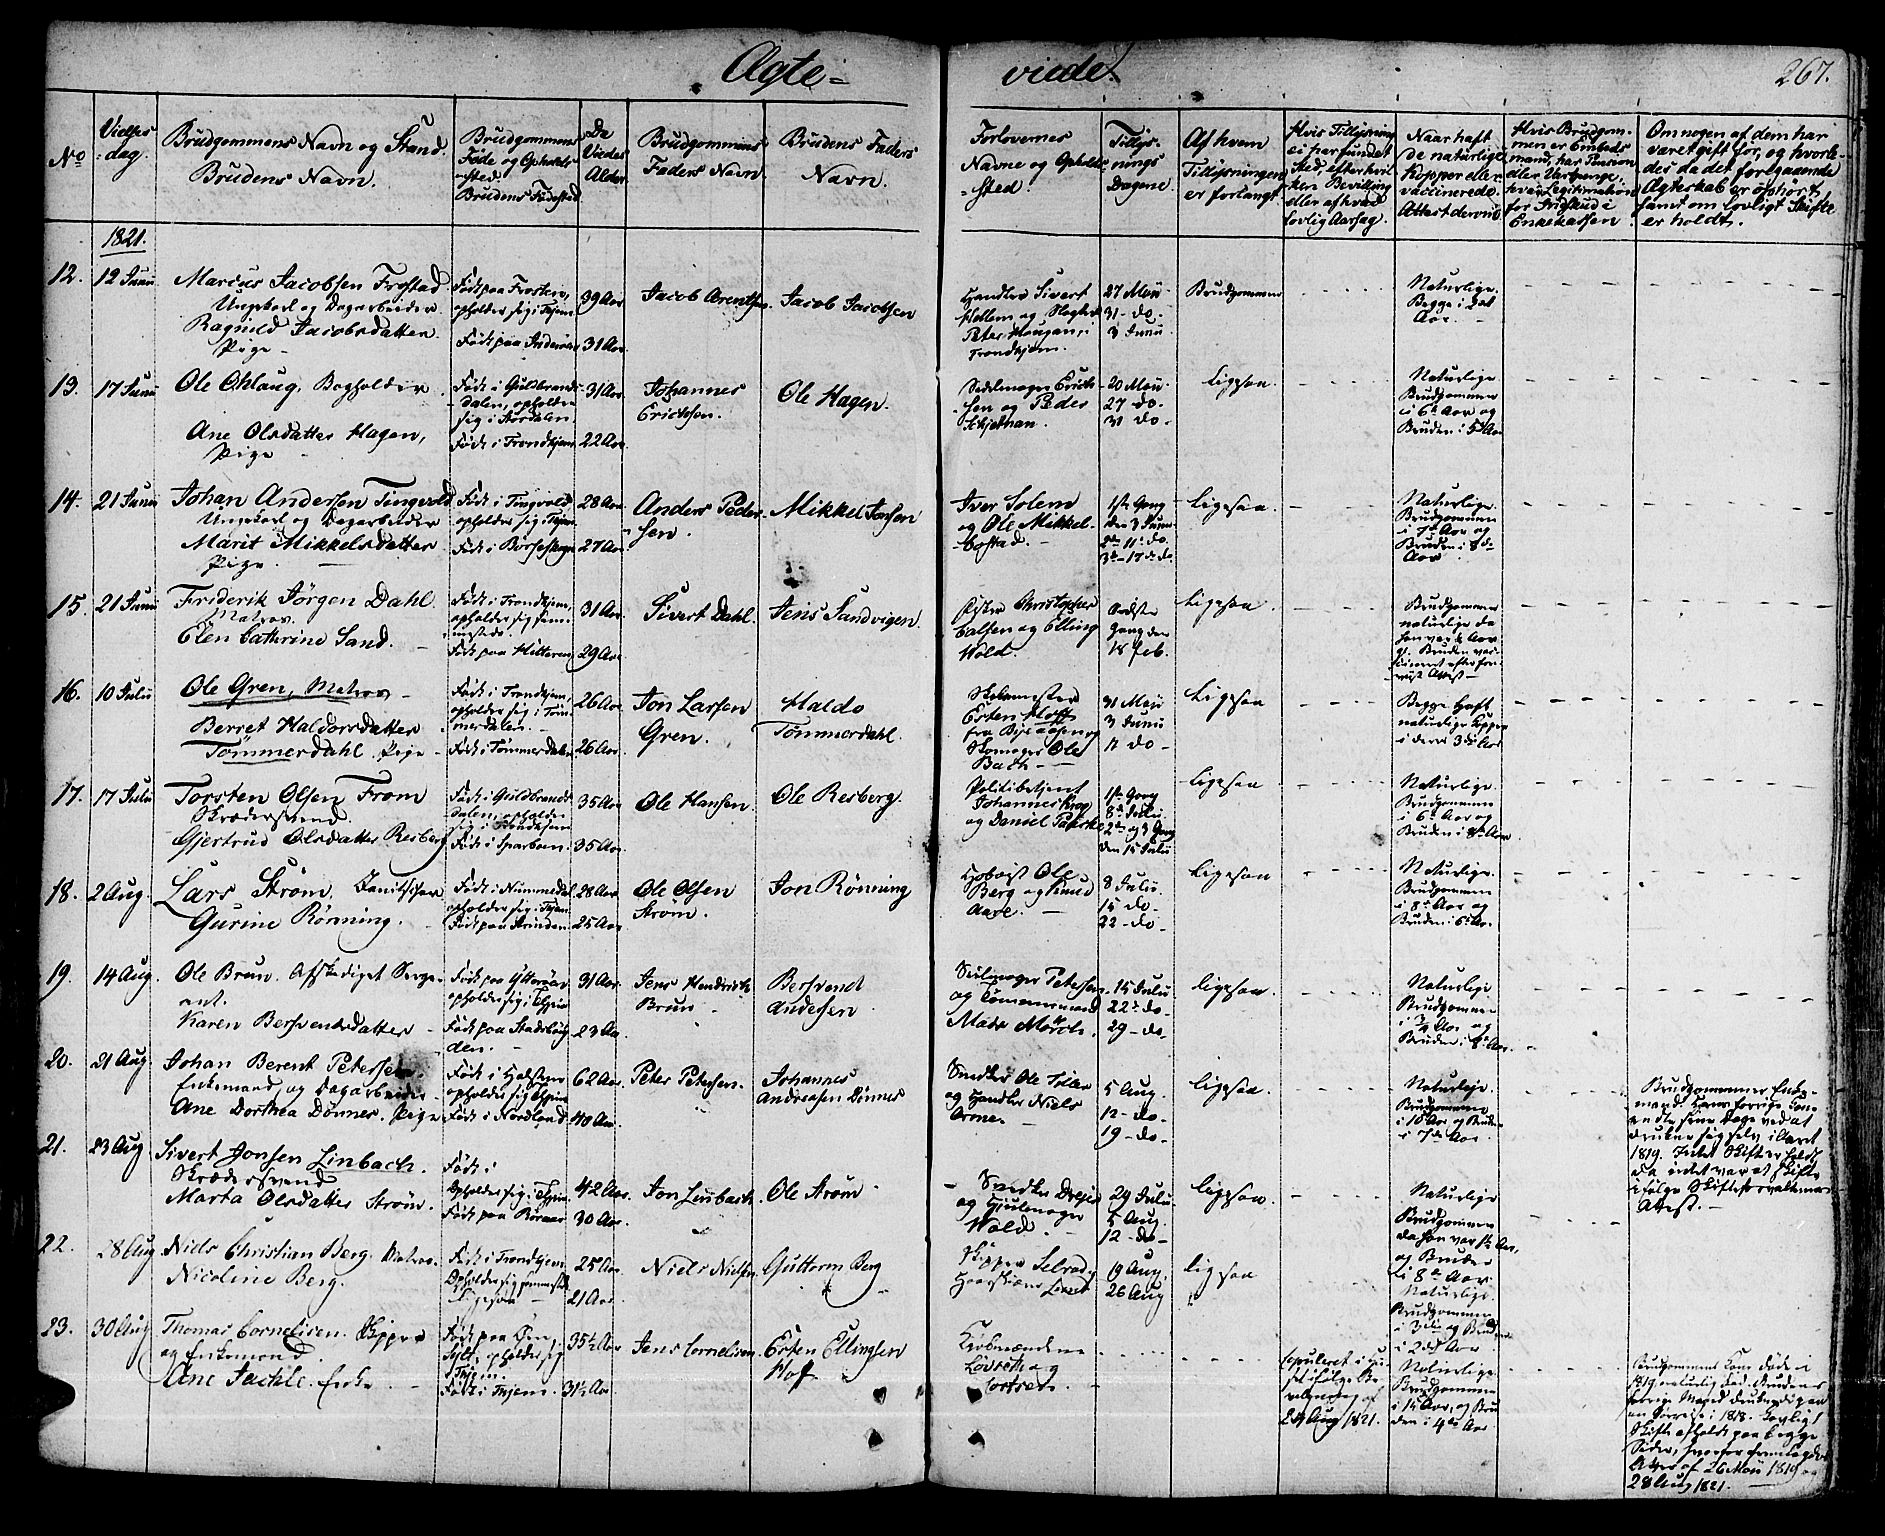 Ægte-
viede.
267.
No
Vielses
dag.
Brudgommens Navn og Stand.
Brudens Navn.
Brudgommens
Føde og Opholds
sted.
Brudens Fødested
Da
Viedes
Alder
Brudgommens
Faders Navn
Brudens Faders
Navn.
Forlovernes
Navne og Opholds
-sted.
Tillys-
nings
Dagene
Af hvem
Tillysningen
er forlangt.
Hvis Tillysning
ei har fundet
Sted, efter hvil
ken Bevilling
eller af hvad
lovlig Aarsag.
Naar haft
de naturlige
Kopper eller
vaccinerede.
Attest derom
Hvis Brudgom-
men er Embeds
mand, har Pension
eller Varpenge,
hvis Legitimation
for Indskud i
Enkekassen
Om nogen af dem har
været gift før, og hvorle-
des da det foregaaende
Ægteskab er ophørt,
samt om lovligt Skifte
er holdt.
1821.
12. 12 Junii
Marcus Jacobsen Frostad
Ungkarl og Dagarbeider
Ragnild Jacobsdatter
Pige -
Født paa Frosten,
opholder sig i Thjem
Født paa Inderøen
39 Aar
31 Aar
Jacob Arentsen
Jacob Jacobsen
Handler Sivert
Hellem og
Peter Haugan, i
Trondhjem.
27 Maii
31 - do.
3 Junii
Brudgommen
Naturlige.
Begge i 2det
Aar.
13. 17 Junii
Ole Ohlaug, Bogholder
Ane Olsdatter Hagen,
Pige -
Født i Guldbrands-
dalen, opholder
sig i Stordalen
Født i Trondhjem
31 Aar
22 Aar.
Johannes
Erichsen.
Ole Hagen.
Sadelmager Erich-
sen og Peder
Skjethan.
20 Maii
27 do.
31 do.
Ligesaa.
Naturlige
Brudgommen
i 6te Aar og
Bruden i 5te Aar
14. 21 Junii
Johan Andersen Tingvold
Ungkarl og Dagarbeider
Marit Mikkelsdatter
Pige. -
Født i Tingvold
opholder sig i Thjem
Født i Børseskogn
28 Aar
27 Aar.
Anders Peder-
sen.
Mikkel Jonsen
Iver Solem
og Ole Mikkel-
bostad. -
1ste Gang
den 3 Junii
2den 11te do.
3die - 17de do.
Ligesaa.
Naturlige.
Brudgommen
i 7de Aar og
Bruden i 8de
Aar
15. 21 Junii
Friderik Jørgen Dahl.
Matros.
Elen Cathrine Sand.
Født i Trondhjem,
opholder sig sam-
mesteds.
Født paa Hitteren
31 Aar.
29 Aar.
Sivert Dahl.
Jens Sandvigen.
Christopher
Calsen og Elling
Wold.
Sidste
Gang den
18 Feb.
Ligesaa.
Brudgommen
naturlige da
han var 4 Aar
gl. Bruden vac-
cineret efter fore-
viist Attest -
16. 10 Julii
Ole Gren, Matros -
Berret Haldorsdatter
Tømmerdahl. Pige -
Født i Trondhjem,
opholder sig i Tøm-
merdalen.
Født i Tømmerdalen
26 Aar
26 Aar.
Jon Larsen
Gren.
Haldo
Tømmerdahl.
Esten Hoff
fra Byeaasen og
Skomager Ole
Bach -
31 Maii
3 Junii
11 do -
Ligesaa
Begge Haft
naturlige Kopper
i deres 3die Aar
17. 17 Julii
Torsten Olsen From
Skrædersvend.
Gjertrud Olsdatter Reeberg
Født i Guldbrands-
dalen, opholder
sig i Trondhjem
Født i Sparboen.
35 Aar
35 Aar.
Ole Hansen.
Ole Resberg.
Politibetjent
Johannes Krog
og Daniel
1ste Gang
8de Julii
2den og 3 Gang
den 15 Julii
Ligesaa
Naturlige
Brudgommen
i 6te Aar og
Bruden i 8de Aar.
18. 2 Aug.
Lars Strøm. Janitschar
Gurine Rønning.
Født i Nummedal
opholder sig i Thjem
Født paa Strinden
28 Aar
25 Aar
Ole Olsen
Strøm.
Jon Rønning
Ole
Berg og Knud
Aare. -
8 Julii.
15 - do.
22 - do -
Ligesaa
Naturlige.
Brudgommen
i 8de Aar og
Bruden i 6te Aar.
19. 14 Aug.
Ole Brun. Afskediget Serge-
ant.
Karen Bersvendsdatter -
Født paa Ytterøen
opholder sig i Thjem
Født paa Stadsbÿg-
den. -
31 Aar.
23 Aar
Jens Hendrich
Brun -
Bersvend
Andersen
Petersen
og Tømmermand
Mads Mörch.
15 Julii
22de do.
29 - do.
ligesaa.
Naturlige
Brudgommen
i Aar og
Bruden i 8de Aar.
20. 21 Aug.
Johan Berent Petersen
Enkemand, og Dagarbeider -
Ane Dorthea Dønnes. Pige
Født i Holsteen
opholder sig i Thjem
Født i Nordland
62 Aar
40 Aar
Peter Petersen.
Johannes
Andreasen Dønnes
Snedker Ole Soler
og Handler Niels
Arne. -
5 Aug.
12 - do -
19 - do -
ligesaa.
Naturlige.
Brudgommen
i 10 Aar og Brude
i 7de Aar.
Brudgommen Enke-
mand. Hans forrige Kone
endte sine Dage ved at
drukne sig selv i Aaret
1819. Intet Skifte er holdt,
da intet var at skifte
ifølge Skifteforvalternes
Attest. -
21. 23 Aug
Sivert Jonsen Linbach.
Skrædersvend
Marta Olsdatter Strøm.
Født i
Opholder sig i Thjem
Født paa Røraas
42 Aar.
30 Aar.
Jon Linbach
Ole Strøm
Snedker
og Hjulmager
Wold.
29 Julii
5 Aug.
12 - do -
ligesaa.
Naturlige
Brudgommen
da han var 1ste Aar,
og Bruden
i 8de Aar
22. 28 Aug
Niels Christian Berg. Matros.
Nicoline Berg.
Født i Trondhjem
Opholder sig sammesteds
Ligesaa -
25 Aar
21 Aar
Niels Nielsen
Guttorm Berg
Skipper Selvad
19 Aug.
26 Aug
ligesaa
Naturlige.
Brudgommen
i 3die og Bruden
i 2det Aar
23. 30 Aug
Thomas Cornelisen. Skipper
og Enkemand.
Ane Jachle. Enke -
Født paa Øen,
Sylt, opholder sig
i Thjem.
Født i Thjem.
35½ Aar
31½ Aar.
Jens Cornelisen.
Esten Ellingsen
Hof
Kiøbmændene
Lovseth og
Copuleret i Hu-
set ifølge Be-
villning af
29 Aug 1821.
Naturlige
Brudgommen
i 15 Aar, og Bru
den i 4de Aar
Brudgommens Kone døde i
1819 naturlig Død. Brudens
forrige Mand druknede paa
en Søreise i 1818. Lovligt
Skifte afholdt paa begge
Sider, hvorfor fremlagdes
Attester af 26 Maii 1819 og
28 Aug 1821.